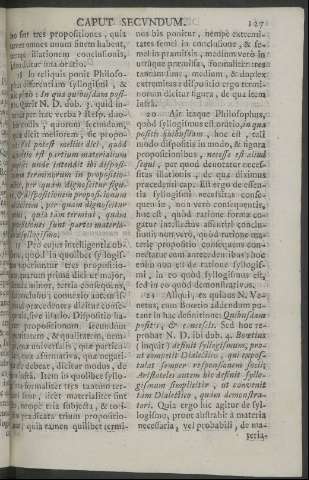 CAPUT SECVNDUM.
no sint tres propositiones, quia
omnes unum finem habent,
illationem conclusionis,
una oratio.
18 In reliquis ponit Philoso-
differentiam syllogismi, &
In qua quibusdam posi-
Quærit N. D. dub. 3. quid in-
per hæc verba? Resp. duo-
modis, quorum secundum,
dicit meliorem, sic propo-
potest melius dici, quod
est partium materialium
unde intendit ibi disposi-
terminorum in propositio-
per quam dignoscitur figu-
& dispositionem propositionum
per quam dignoscitur
quia tàm termini, quàm
positiones sunt partes materia-
syllogismi.
19 Pro cujus intelligentia ob-
quod in quolibet syllogis-
reperiuntur tres propositio-
prima dicitur major,
minor, tertia consequens,
connexio autem is-
præcedentes dicitur conse-
sive illatio. Dispositio ha-
propositionum, secundum
quantitatem, & qualitatem, nempe
universalis, quæ particu-
quæ affirmativa, quæ negati-
debeat, dicitur modus, de
infrà. Item in quolibet syllo-
formaliter tres tantum ter-
licet materialiter sint
nempè tria subjecta, & to-
prædicata trium propositio-
quia tamen quilibet termi-
127
nus bis ponitur, hempè extremi-
tates semel in conclusione, & se-
mel in præmissis, medium verò in
utraque præmissa, formaliter tres
tantum sunt, medium, & duplex
extremitas: dispositio ergo termi-
norum dicitur figura, de qua item
infrà.
20 Ait itaque Philosophus,
quod syllogismus est oratio, in qua
positis quibusdam, hoc est, tali
modo dispositis in modo, & figura
propositionibus, necesse est aliud
sequi, per quod denotatur necessi-
tas illationis, de qua diximus
præcedenti cap. Est ergo de essen-
tia syllogismi necessitas conse-
quentiæ, non verò consequentis,
hoc est, quòd ratione formæ co-
gatur intellectus assentiri conclu-
sioni; non verò, quòd ratione ma-
teriæ propositio consequens con-
nectatur cum antecedentibus: hoc
enim non est de ratione syllogis-
mi, in eo quòd syllogismus est,
sed in eo quòd demonstrativus.
21 Aliqui, ex quibus N. Ve-
netus, cum Boetio addendum pu-
tant in hac definitione: Quibusdam
positis, & concessis. Sed hoc re-
probat N. D. ibi dub. 4. Boetius
(inquit) definit syllogismum, pro-
ut competit Dialectico, qui expos-
tulat semper responsionem socij;
Aristoteles autem hic definit syllo-
gismum simpliciter, ut convenit
tàm Dialectico, quàm demonstra-
tori. Quia ergo hic agitur de syl-
logismo, prout abstrahit à materia
necessaria, vel probabili, de ma-
teria-